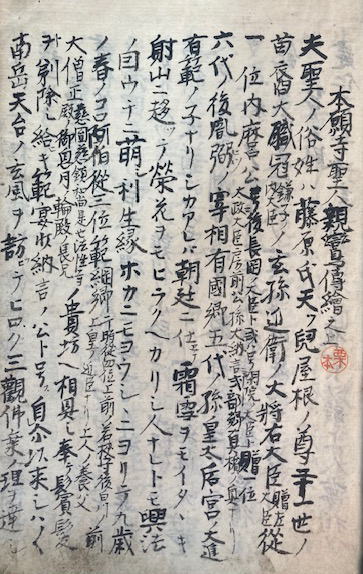 本願寺聖人親鸞傳繪
夫聖人ノ俗姓ハ藤原氏天ツ兒屋根ノ尊二十一世ノ
苗裔大職冠鎌子内大臣ノ玄孫近衛ノ大将右大臣贈左大臣從
一位内麿公後長岡大臣贈一位太政大臣房前公孫大納言式部卿真楯ノ息ナリ
六代後胤弼ノ宰相有國卿五代ノ孫皇太后宮ノ大進
有範ノ子ナリシカアレハ朝廷ニ仕テ霜雪ヲモイタヽキ
射山ニ趍テ榮花ヲモヒラクヘカリシ人ナレトモ興法
ノ因ウチニ萌シ利生縁ホカニモヨウシヽニヨリテ九歳
ノ春ノコロ阿伯從三位範綱卿于時從四位上前若狭守後白川上皇ノ近臣ナリ上人ノ養父前
大僧正慈圓慈鎮和尚是也法性寺殿御息月輪殿長兄ノ貴坊ヘ相具シ奉テ鬢髮
ヲ剃除シ給キ範宴少納言ノ公ト号ス自尒以来シハ〱
南岳天台ノ玄風ヲ訪テヒロク三觀佛乘ノ理ヲ達シ